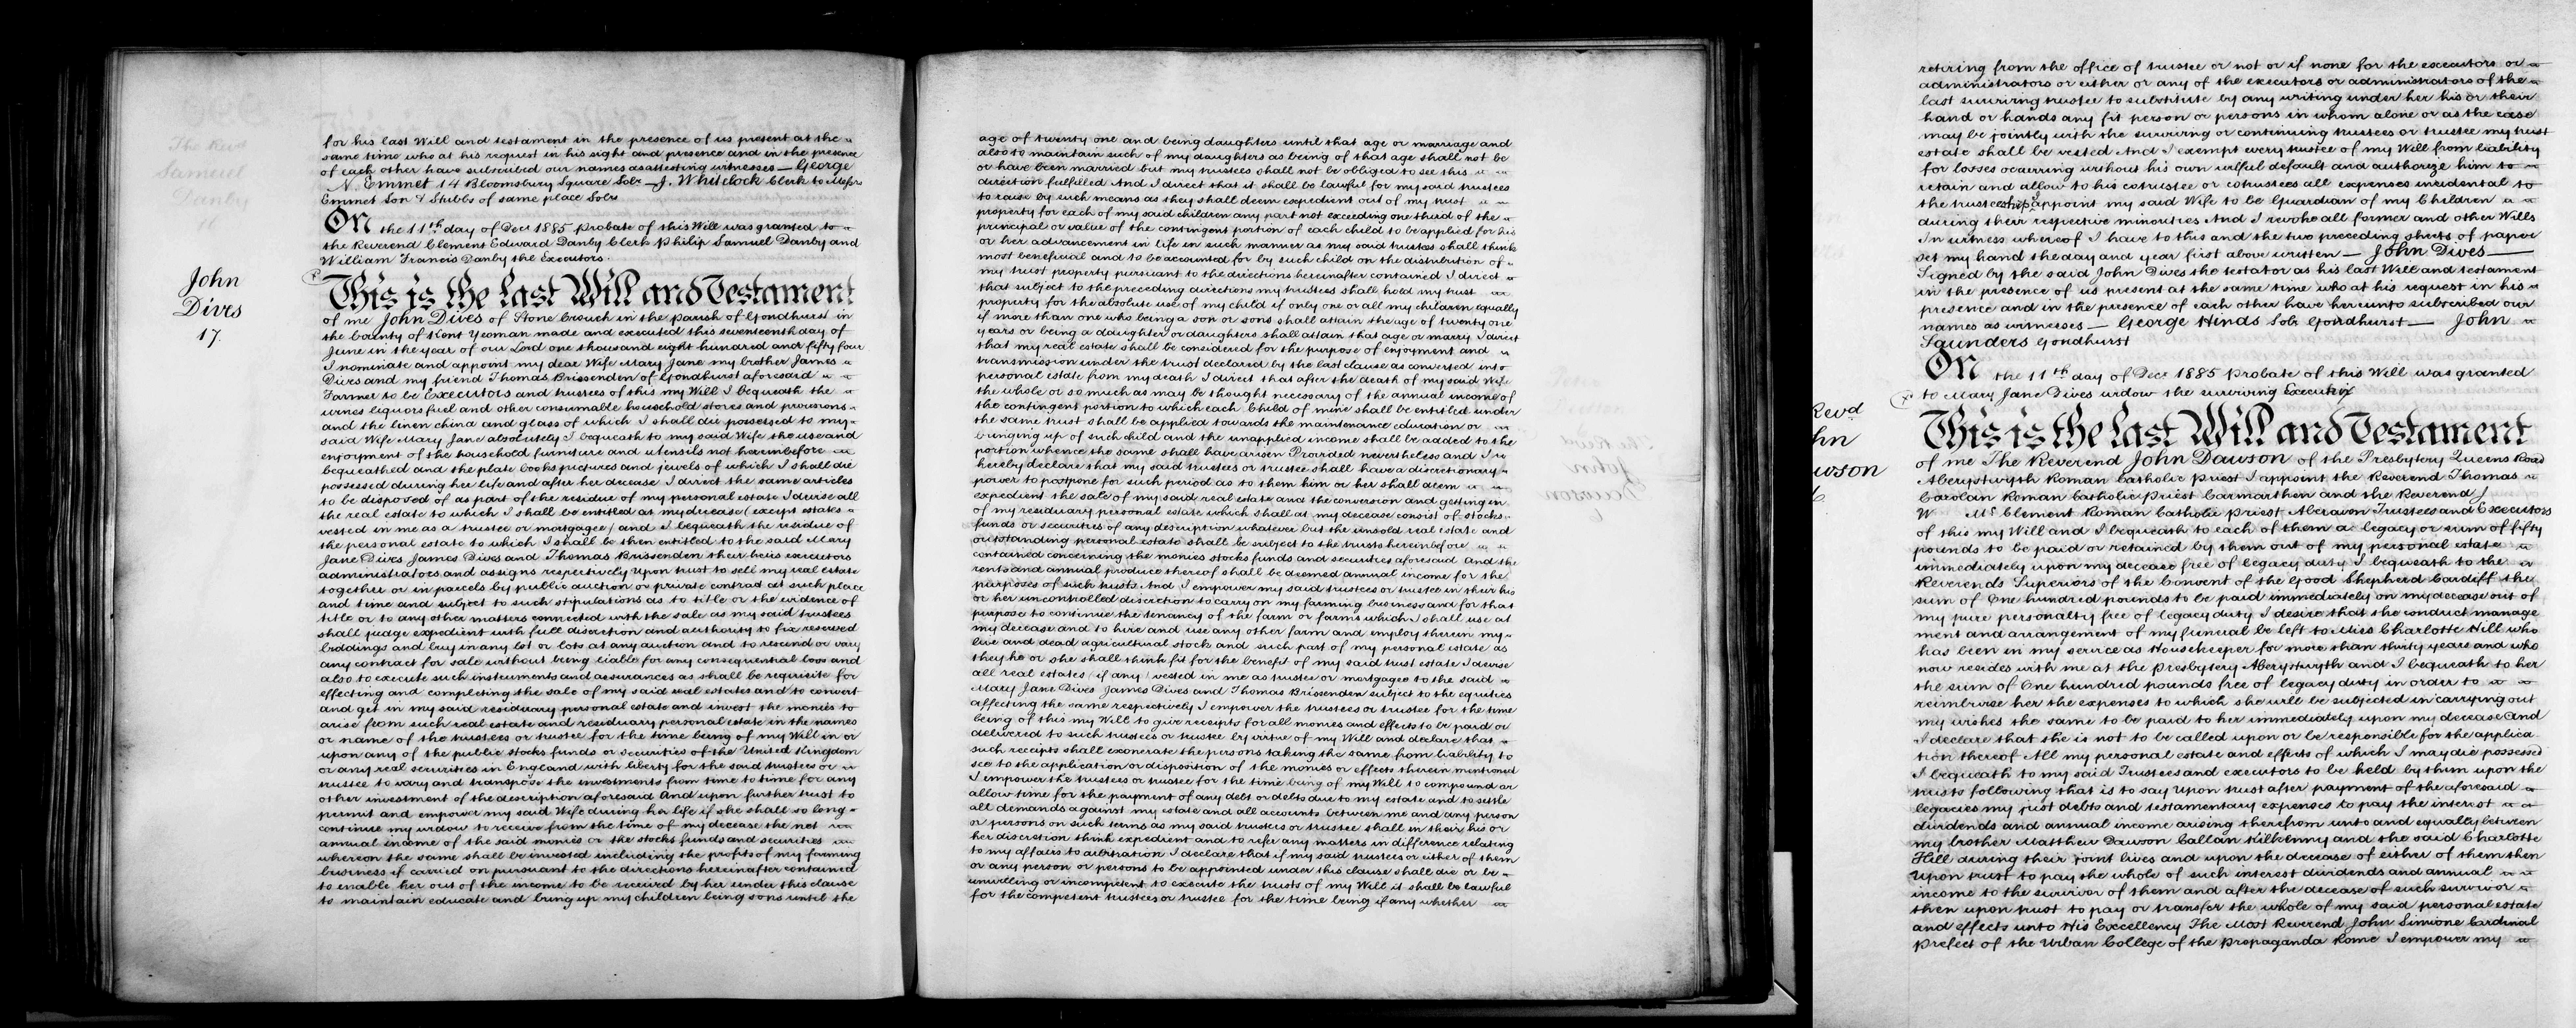 The Revd
Samuel
Danby
16
for his last Will and testament in the presence of us present at the
same time who at his request in his sight and presence and in the presence
of each other have subscribed our names as attesting witnesses — George
N. Emmet 14 Bloomsbury Square Solr — J. Whitelock Clerk to Messrs
Emmet Son & Stubbs of same place Solrs
On the 11th day of Decr 1885 Probate of this Will was granted to
the Reverend Clement Edward Danby Clerk Philip Samuel Danby and
William Francis Danby the Executors.
John
Dives
17.
This is the last Will and Testament
of me John Dives of Stone Crouch in the parish of Goudhurst in
the County of Kent Yeoman made and executed this seventeenth day of
June in the year of our Lord one thousand eight hundred and fifty four
I nominate and appoint my dear Wife Mary Jane my brother James
Dives and my friend Thomas Brissenden of Goudhurst aforesaid
Farmer to be Executors and trustees of this my Will I bequeath the
wines liquors fuel and other consumable household stores and provisions
and the linen china and glass of which I shall die possessed to my
said Wife Mary Jane absolutely I bequeath to my said Wife the use and
enjoyment of the household furniture and utensils not hereinbefore
bequeathed and the plate books pictures and jewels of which I shall die
possessed during her life and after her decease I direct the same articles
to be disposed of as part of the residue of my personal estate I devise all
the real estate to which I shall be entitled at my decease (except estates
vested in me as a trustee or mortgagee) and I bequeath the residue of
the personal estate to which I shall be then entitled to the said Mary
Jane Dives James Dives and Thomas Brissenden their heirs executors
administrators and assigns respectively upon trust to sell my real estate
together or in parcels by public auction or private contract at such place
and time and subject to such stipulations as to title or the evidence of
title or to any other matters connected with the sale as my said trustees
shall judge expedient with full discretion and authority to fix reserved
biddings and buy in any lot or lots at any auction and to rescind or vary
any contract for sale without being liable for any consequential loss and
also to execute such instruments and assurances as shall be requisite for
effecting and completing the sale of my said real estates and to convert
and get in my said residuary personal estate and invest the monies to
arise from such real estate and residuary personal estate in the names
or name of the trustees or trustee for the time being of my Will in or
upon any of the public stocks funds or securities of the United Kingdom
or any real securities in England with liberty for the said trustees or
trustee to vary and transpose the investments from time to time for any
other investment of the description aforesaid And upon further trust to
permit and empower my said Wife during her life if she shall so long
continue my widow to receive from the time of my decease the net
annual income of the said monies or the stocks funds and securities
whereon the same shall be invested including the profits of my farming
business if carried on pursuant to the directions hereinafter contained
to enable her out of the income to be received by her under this clause
to maintain educate and bring up my children being sons until the
age of twenty one and being daughters until that age or marriage and
also to maintain such of my daughters as being of that age shall not be
or have been married but my trustees shall not be obliged to see this
direction fulfilled And I direct that it shall be lawful for my said trustees
to raise by such means as they shall deem expedient out of my trust
property for each of my said children any part not exceeding one third of the
principal or value of the contingent portion of each child to be applied for his
or her advancement in life in such manner as my said trustees shall think
most beneficial and to be accounted for by such child on the distribution of
my trust property pursuant to the directions hereinafter contained I direct
that subject to the preceding directions my trustees shall hold my trust
property for the absolute use of my child if only one or all my children equally
if more than one who being a son or sons shall attain the age of twenty one
years or being a daughter or daughters shall attain that age or marry I direct
that my real estate shall be considered for the purpose of enjoyment and
transmission under the trust declared by the last clause as converted into
personal estate from my death I direct that after the death of my said Wife
the whole or so much as may be thought necessary of the annual income of
the contingent portion to which each Child of mine shall be entitled under
the same trust shall be applied towards the maintenance education or
bringing up of such child and the unapplied income shall be added to the
portion whence the same shall have arisen Provided nevertheless and I
hereby declare that my said trustees or trustee shall have a discretionary
power to postpone for such period as to them him or her shall deem
expedient the sale of my said real estate and the conversion and getting in
of my residuary personal estate which shall at my decease consist of stocks
funds or securities of any description whatever but the unsold real estate and
outstanding personal estate shall be subject to the trusts hereinbefore
contained concerning the monies stocks funds and securities aforesaid And the
rents and annual produce thereof shall be deemed annual income for the
purposes of such trusts And I empower my said trustees or trustee in their his
or her uncontrolled discretion to carry on my farming business and for that
purpose to continue the tenancy of the farm or farms which I shall use at
my decease and to hire and use any other farm and employ therein my
live and dead agricultural stock and such part of my personal estate as
they he or she shall think fit for the benefit of my said trust estate I devise
all real estates (if any) vested in me as trustee or mortgagee to the said
Mary Jane Dives James Dives and Thomas Brissenden subject to the equities
affecting the same respectively I empower the trustees or trustee for the time
being of this my Will to give receipts for all monies and effects to be paid or
delivered to such trustees or trustee by virtue of my Will and declare that
such receipts shall exonerate the persons taking the same from liability to
see to the application or disposition of the monies or effects therein mentioned
I empower the trustees or trustee for the time being of my Will to compound or
allow time for the payment of any debt or debts due to my estate and to settle
all demands against my estate and all accounts between me and any person
or persons on such terms as my said trustees or trustee shall in their his or
her discretion think expedient and to refer any matters in difference relating
to my affairs to arbitration I declare that if my said trustees or either of them
or any person or persons to be appointed under this clause shall die or be
unwilling or incompetent to execute the trusts of my Will it shall be lawful
for the competent trustees or trustee for the time being if any whether
retiring from the office of trustee or not or if none for the executors or
administrators or either or any of the executors or administrators of the
last surviving trustee to substitute by any writing under her his or their
hand or hands any fit person or persons in whom alone or as the case
may be jointly with the surviving or continuing trustees or trustee my trust
estate shall be vested And I exempt every trustee of my Will from liability
for losses occurring without his own wilful default and authorize him to
retain and allow to his cotrustee or cotrustees all expenses incidental to
the trusteeship I appoint my said Wife to be Guardian of my Children
during their respective minorities And I revoke all former and other Wills
In witness whereof I have to this and the two preceding sheets of paper
set my hand the day and year first above written — John Dives —
Signed by the said John Dives the testator as his last Will and testament
in the presence of us present at the same time who at his request in his
presence and in the presence of each other have hereunto subscribed our
names as witnesses — George Hinds Solr Goudhurst — John
Saunders Goudhurst
On the 11th day of Decr 1885 Probate of this Will was granted
to Mary Jane Dives widow the surviving Executrix
Revd
hn
wson
This is the last Will and Testament
of me The Reverend John Dawson of the Presbytery Queens Road
Aberystwyth Roman Catholic Priest I appoint the Reverend Thomas
Carolan Roman Catholic Priest Carmarthen and the Reverend J
W McClement Roman Catholic Priest Aberavon Trustees and Executors
of this my Will and I bequeath to each of them a legacy or sum of fifty
pounds to be paid or retained by them out of my personal estate
immediately upon my decease free of legacy duty I bequeath to the
Reverends Superiors of the Convent of the Good Shepherd Cardiff the
sum of One hundred pounds to be paid immediately on my decease out of
my pure personalty free of legacy duty I desire that the conduct manage
ment and arrangement of my funeral be left to Miss Charlotte Hill who
has been in my service as Housekeeper for more than thirty years and who
now resides with me at the Presbytery Aberystwyth and I bequeath to her
the sum of One hundred pounds free of legacy duty in order to
reimburse her the expenses to which she will be subjected in carrying out
my wishes the same to be paid to her immediately upon my decease And
I declare that she is not to be called upon or be responsible for the applica
tion thereof All my personal estate and effects of which I may die possessed
I bequeath to my said Trustees and executors to be held by them upon the
trusts following that is to say Upon trust after payment of the aforesaid
legacies my just debts and testamentary expenses to pay the interest
dividends and annual income arising therefrom unto and equally between
my brother Matthew Dawson Callan Kilkenny and the said Charlotte
Hill during their joint lives and upon the decease of either of them then
Upon trust to pay the whole of such interest dividends and annual
income to the survivor of them and after the decease of such survivor
then upon trust to pay or transfer the whole of my said personal estate
and effects unto His Excellency The Most Reverend John Simione Cardinal
Prefect of the Urban College of the Propaganda Rome I empower my